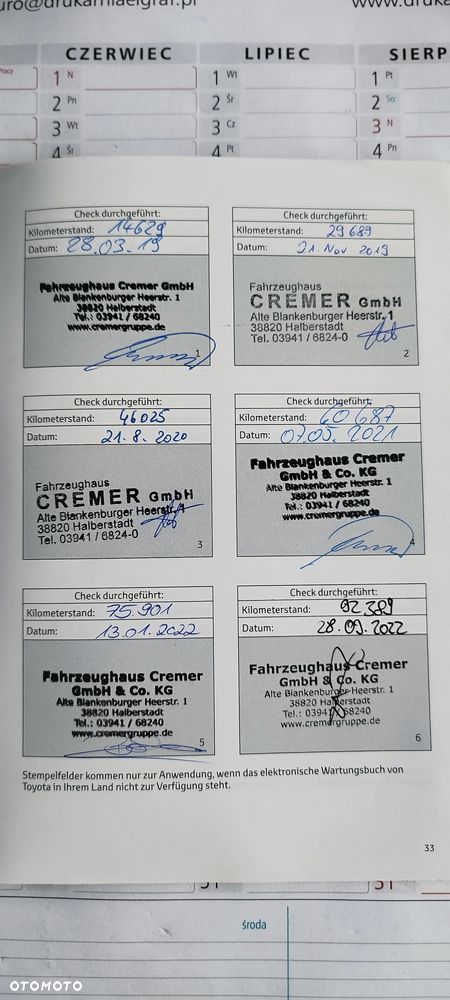 uro@drukarniaelgraf.pl
www.druka
CZERWIEC
LIPIEC
SIERP
1 N
1 Wt
1 Pt
2 Pn
2 Śr
2 So
3 Wt
3 Cz
3 N
4 Śr
4 Pt
4 Pn
Check durchgeführt:
Kilometerstand: 14629
Datum: 28.03.19
Fahrzeughaus Cremer GmbH
Alte Blankenburger Heerstr. 1
38820 Halberstadt
Tel.: 03941 / 68240
www.cremergruppe.de
1
Check durchgeführt:
Kilometerstand: 29689
Datum: 21. Nov 2019
Fahrzeughaus
CREMER GmbH
Alte Blankenburger Heerstr. 1
38820 Halberstadt
Tel. 03941 / 6824-0
2
Check durchgeführt:
Kilometerstand: 46025
Datum: 21.8.2020
Fahrzeughaus
CREMER GmbH
Alte Blankenburger Heerstr. 1
38820 Halberstadt
Tel. 03941 / 6824-0
3
Check durchgeführt:
Kilometerstand: 60687
Datum: 07.05.2021
Fahrzeughaus Cremer
GmbH & Co. KG
Alte Blankenburger Heerstr. 1
38820 Halberstadt
Tel.: 03941 / 68240
www.cremergruppe.de
4
Check durchgeführt:
Kilometerstand: 75.901
Datum: 13.01.2022
Fahrzeughaus Cremer
GmbH & Co. KG
Alte Blankenburger Heerstr. 1
38820 Halberstadt
Tel.: 03941 / 68240
www.cremergruppe.de
5
Check durchgeführt:
Kilometerstand: 92389
Datum: 28.09.2022
Fahrzeughaus Cremer
GmbH & Co. KG
Alte Blankenburger Heerstr. 1
38820 Halberstadt
Tel.: 03941 / 68240
www.cremergruppe.de
6
Stempelfelder kommen nur zur Anwendung, wenn das elektronische Wartungsbuch von
Toyota in Ihrem Land nicht zur Verfügung steht.
33
31
31
środa
OTOMOTO